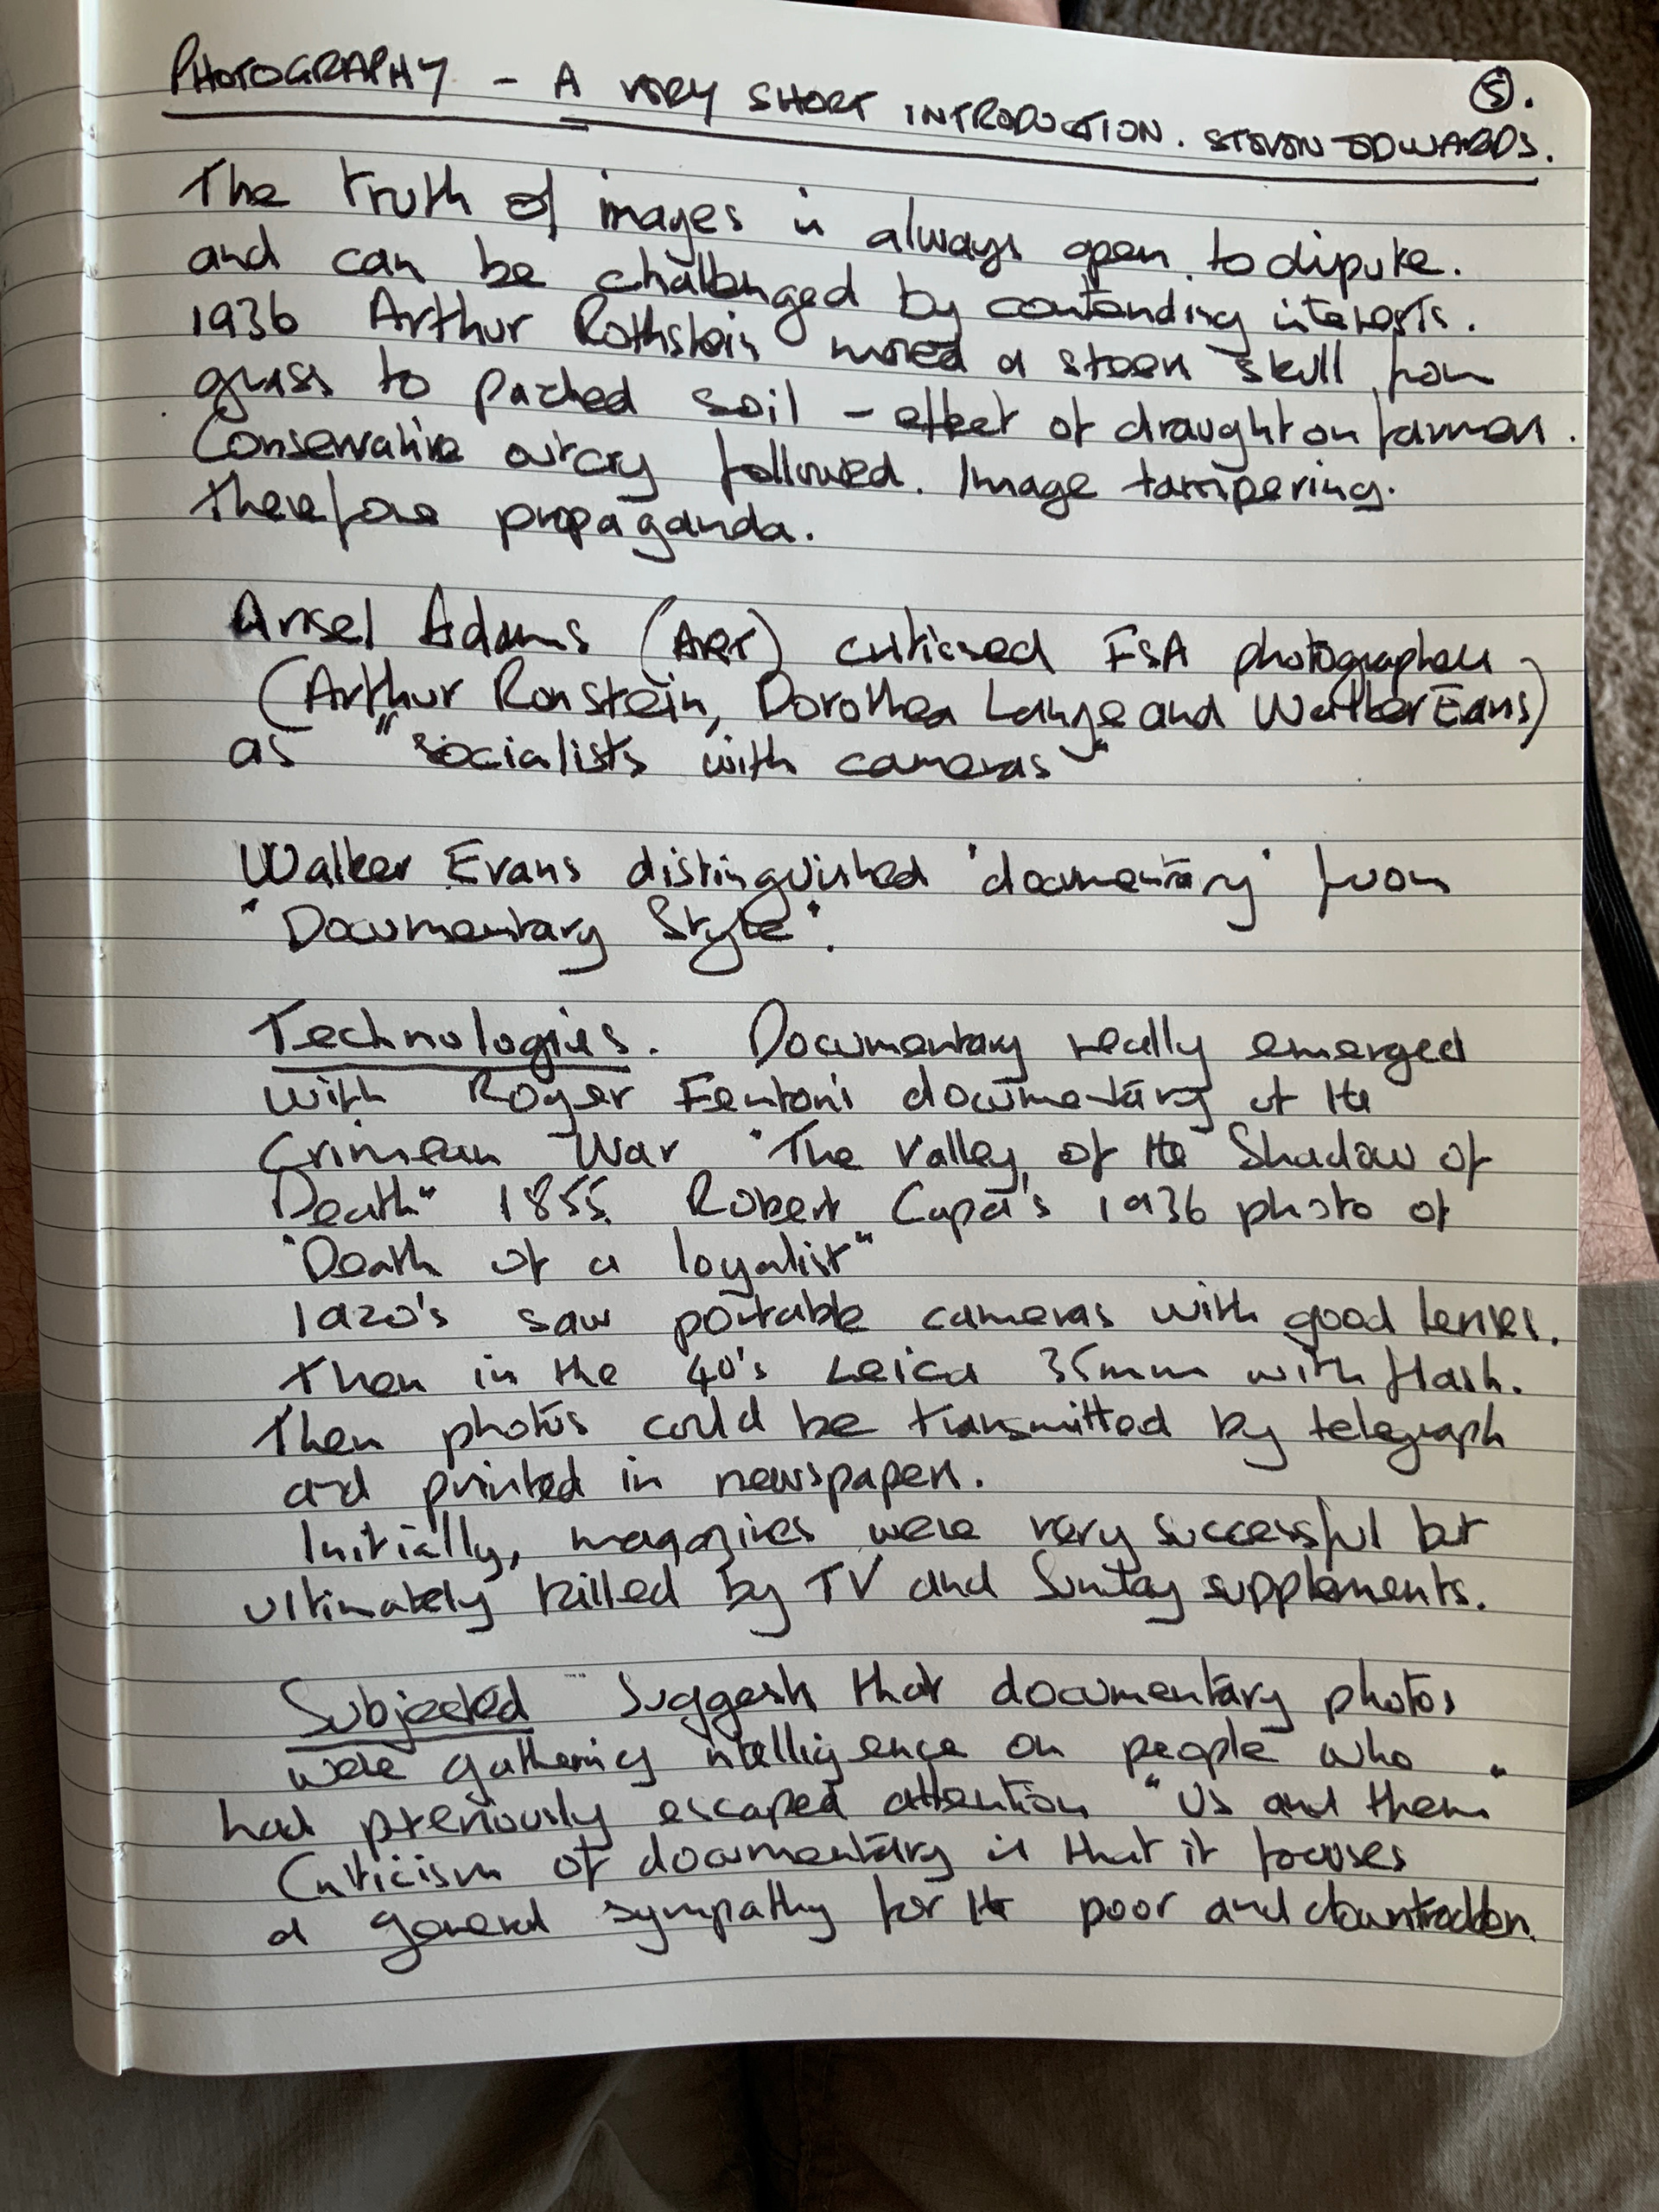 PHOTOGRAPHY - A VERY SHORT INTRODUCTION. STEVEN EDWARDS. 5.
The truth of images is always open to dispute.
and can be challenged by contending interests.
1936 Arthur Rothstein moved a steer skull from
grass to parched soil - effect of draught on farmers.
Conservative outcry followed. Image tampering.
therefore propaganda.
Ansel Adams (ART) criticised FSA photographers
(Arthur Ronstein, Dorothea Lange and Walker Evans)
as "socialists with cameras"
Walker Evans distinguished 'documentary' from
"Documentary Style".
Technologies. Documentary really emerged
with Roger Fenton's documentary of the
Crimean War "The Valley of the Shadow of
Death" 1855. Robert Capa's 1936 photo of
"Death of a loyalist"
1920's saw portable cameras with good lenses.
Then in the 40's Leica 35mm with flash.
Then photos could be transmitted by telegraph
and printed in newspapers.
Initially, magazines were very successful but
ultimately killed by TV and Sunday supplements.
Subjected Suggests that documentary photos
were gathering intelligence on people who
had previously escaped attention "Us and them"
Criticism of documentary is that it focuses
a general sympathy for the poor and downtrodden.